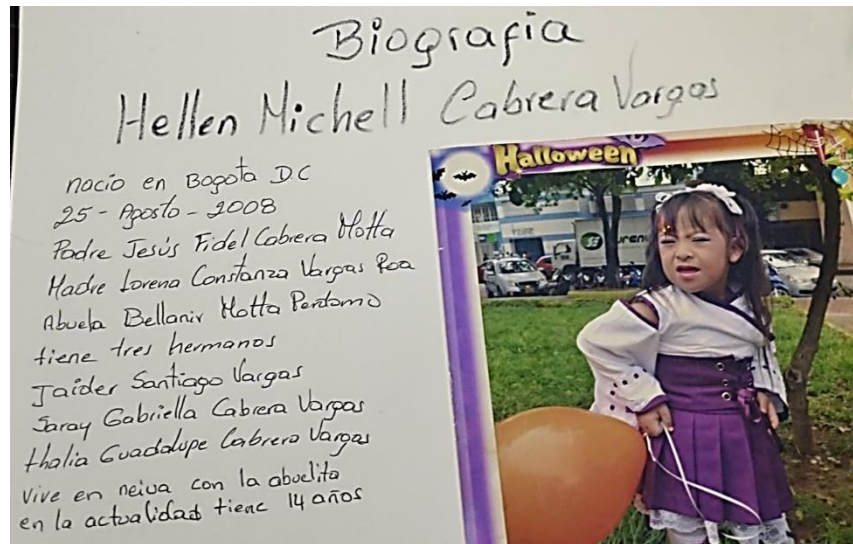 Biografia
Hellen Michell Cabrera Vargas
nacio en Bogota D.C
25 - Agosto - 2008
Padre Jesús Fidel Cabrera Motta
Madre Lorena Constanza Vargas Roa
Abuela Bellanir Motta Perdomo
tiene tres hermanos
Jaider Santiago Vargas
Saray Gabriella Cabrera Vargas
thalia Guadalupe Cabrera Vargas
vive en neiva con la abuelita
en la actualidad tiene 14 años
Halloween